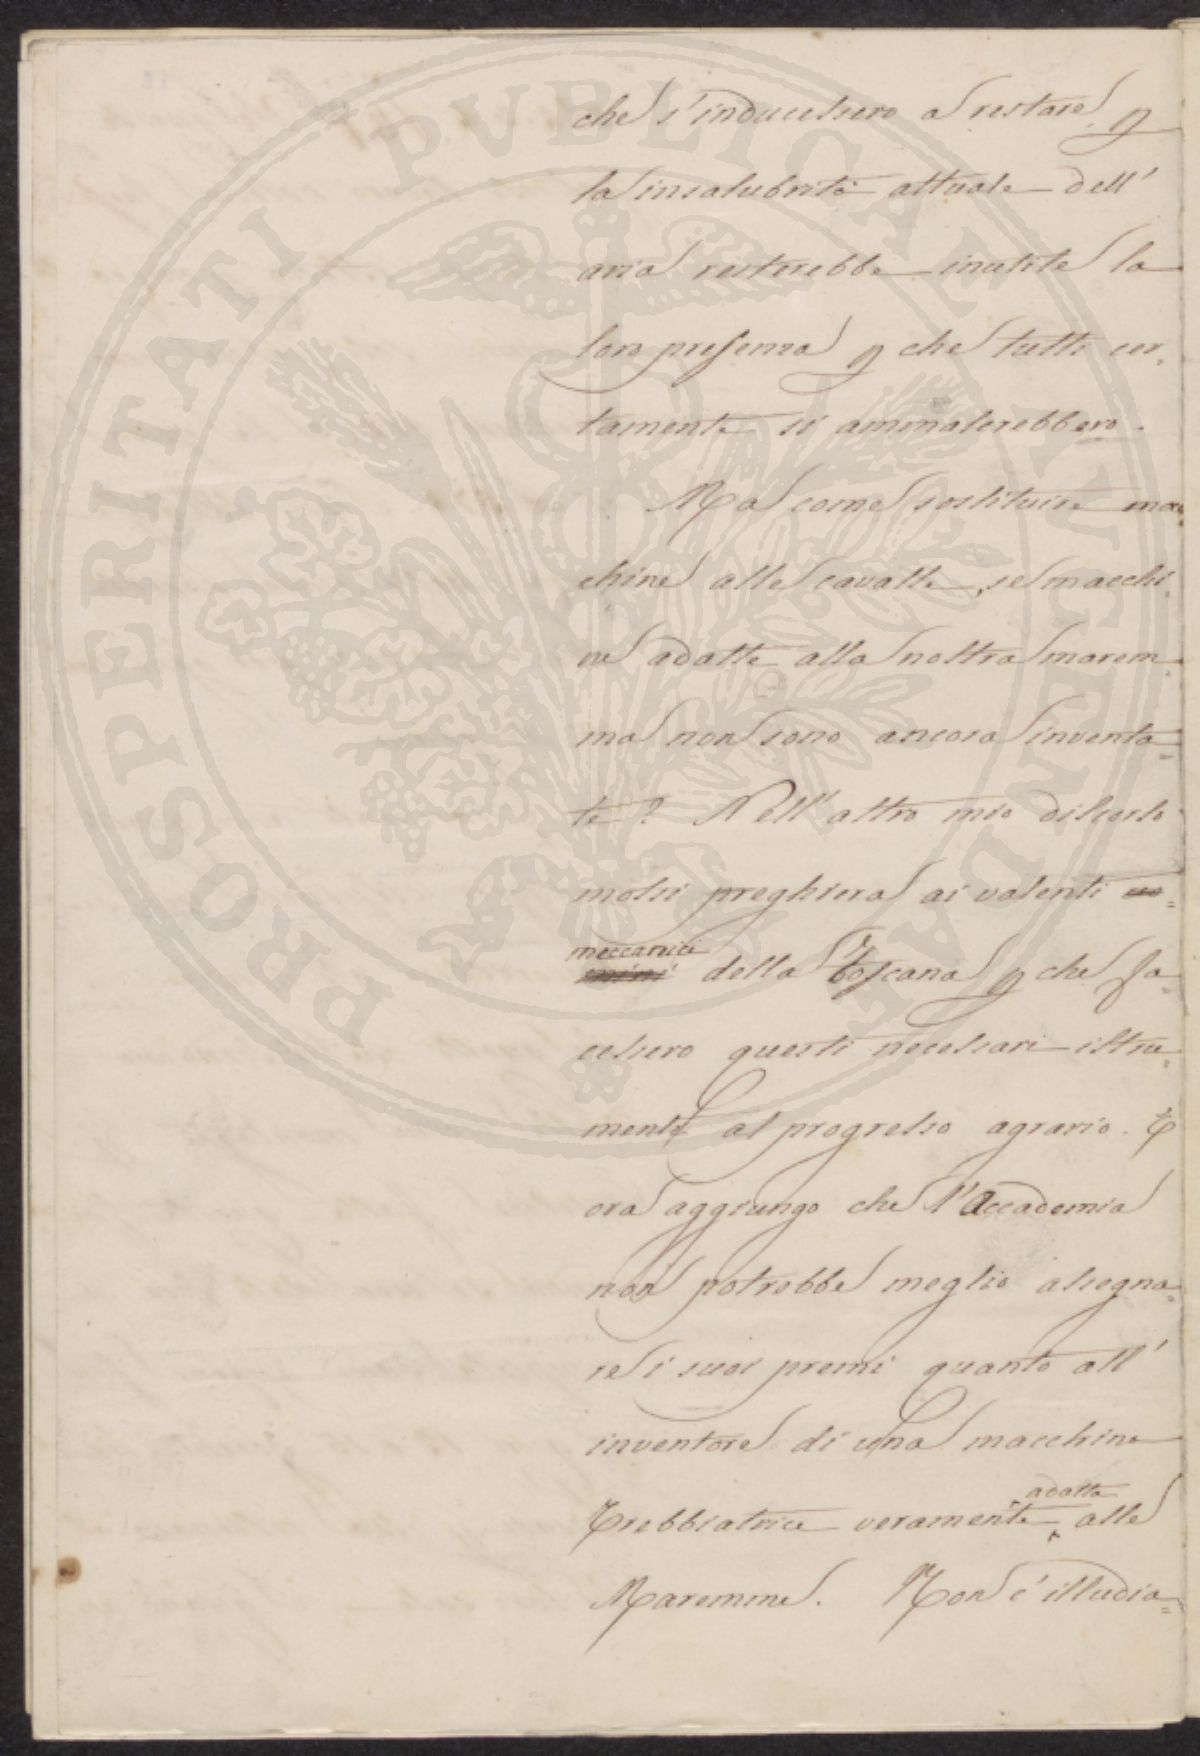 PROSPERITATI PVBLICAE AVGENDAE
che s'inducessero a restare p
la insalubrità attuale dell'
aria resterebbe inutile la
loro presenza p che tutti cer-
tamente si ammalerebbero.
Ma come sostituire mac
chine alle cavalle, se macchi-
ne adatte alla nostra marem-
ma non sono ancora inventa=
te? Nell'altro mio discorso
mossi preghiera ai valenti uo=
mini meccanici della Toscana p che fa=
cessero questi necessari istru=
menti al progresso agrario. E
ora aggiungo che l'Accademia
non potrebbe meglio assegna=
re i suoi premi quanto all'
inventore di una macchina
Trebbiatrice veramente adatta alle
Maremme. Non c'illudia=